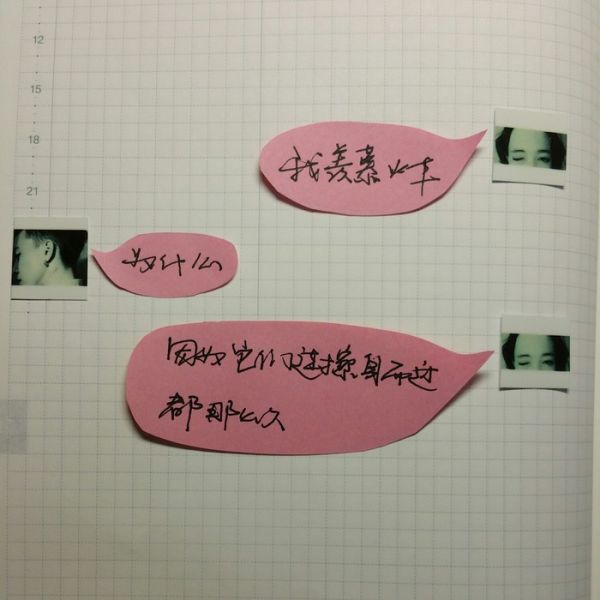 12
15
18
我羡慕火车
21
为什么
因为它们连擦身而过
都那么久